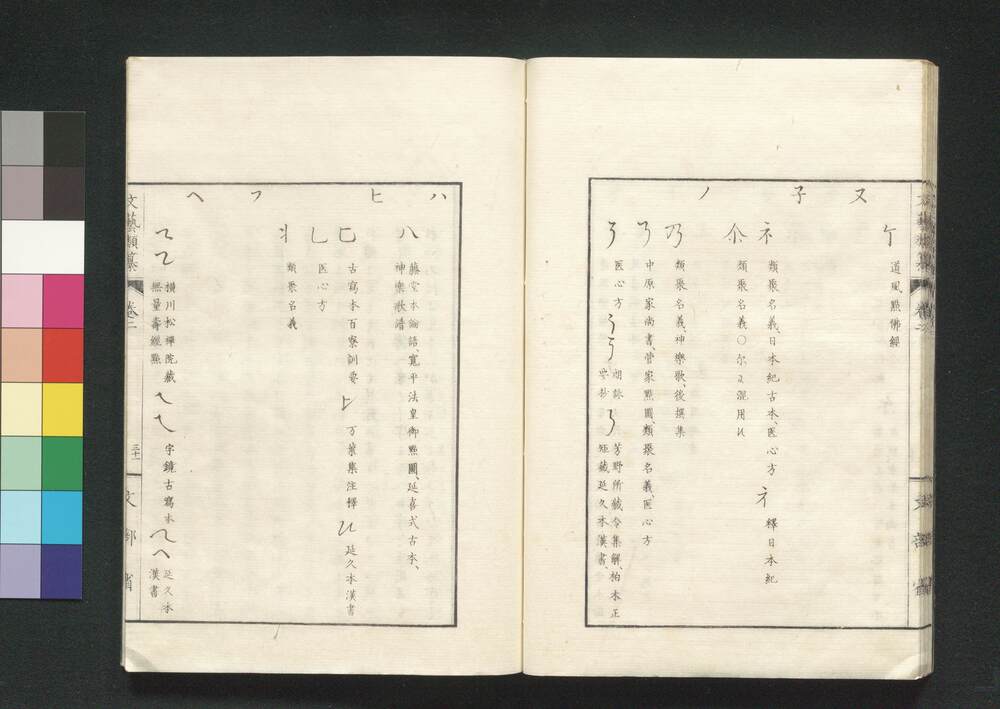 ケ 道風點佛經
ヌ
子
ネ 類聚名義、日本紀古本、医心方 ネ 釋日本紀
尒 類聚名義〇尔ヌ混用ス
ノ
乃 類聚名義、神樂歌、後撰集
中原家尚書、菅家點圖、類聚名義、医心方
医心方 朗詠 芳野所藏令集解、柏木正
矩藏延久本漢書、
ハ
八 藤堂本論語、寬平法皇御點圖、延喜式古本、
神樂歌譜
ヒ
匕 古寫本百寮訓要 万葉集注釋 ヒ 延久本漢書
乚 医心方
フ
類聚名義
ヘ
橫川松禪院藏
無量壽經點
字鏡古寫本
延久本
漢書
文藝類纂 卷二
三十一
文部省